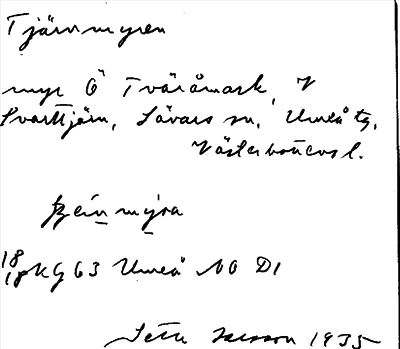 Tjärnmyren
myr Ö Tväråmark, V
Svarttjärn, Sävars sn, Umeå tg,
Västerbottens l.
myra
18
18 kg 63 Umeå NO D1
1935